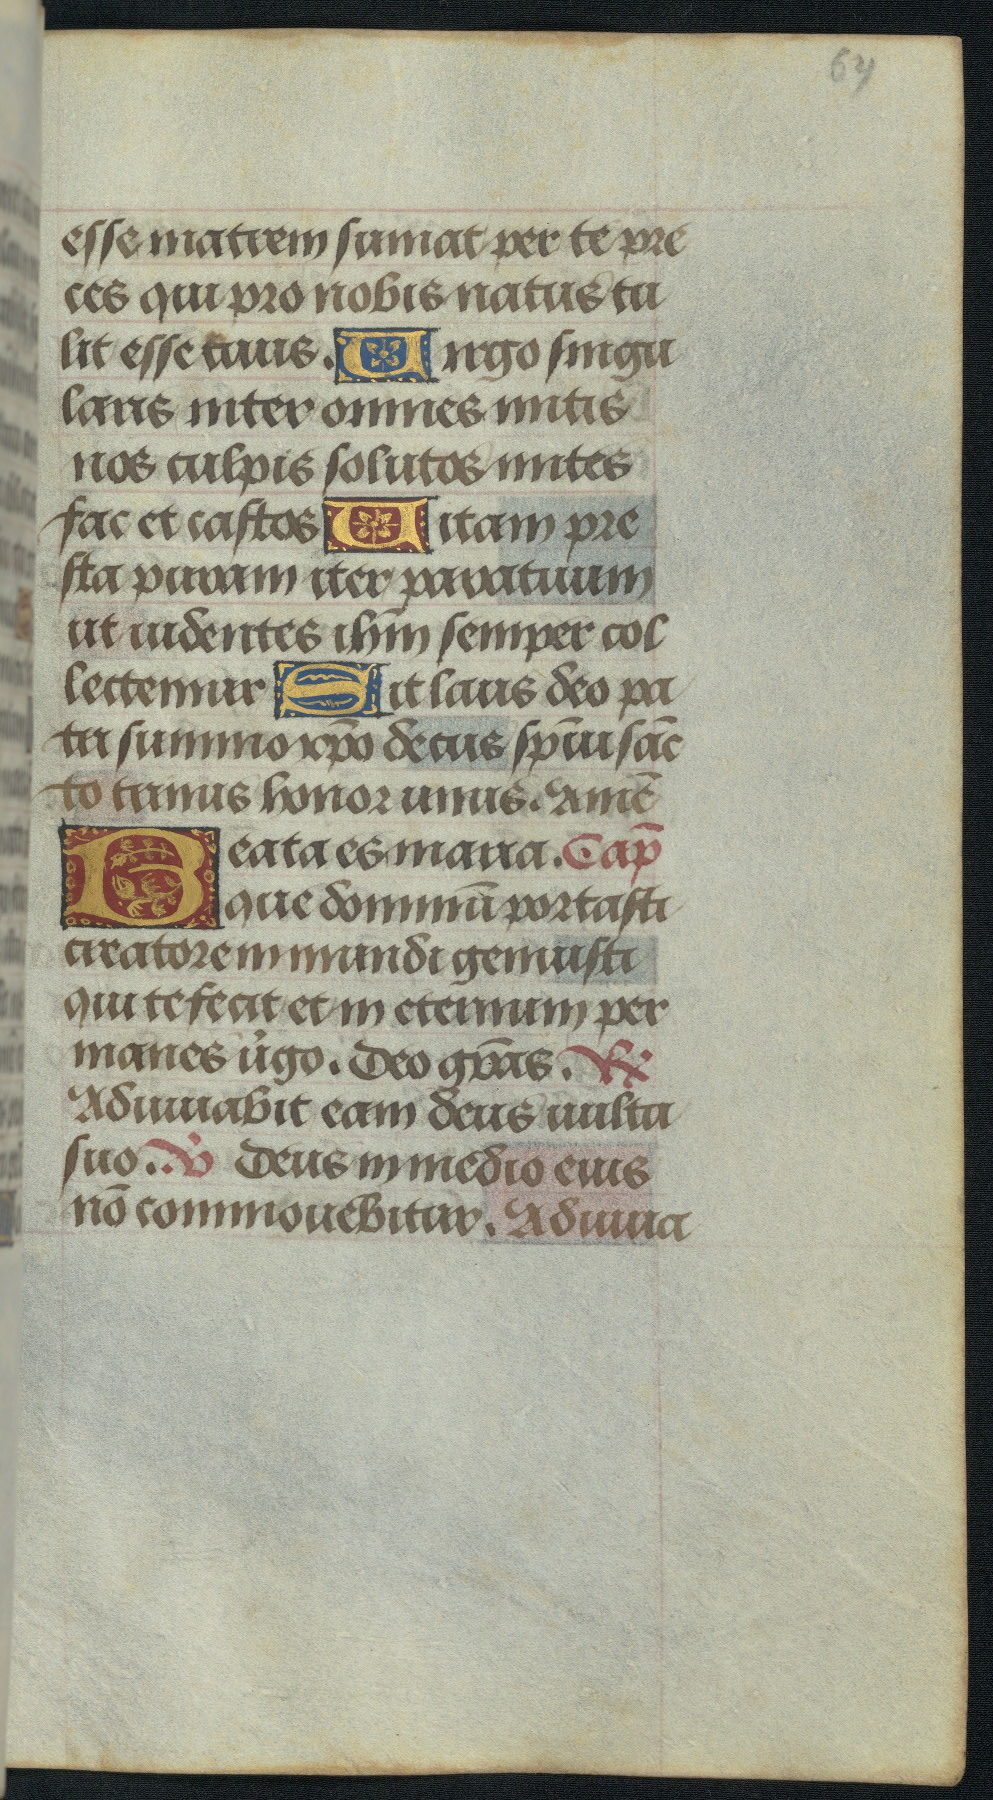 64
esse matrem sumat per te pre
ces qui pro nobis natus tu
lit esse tuus. Uirgo singu
laris inter omnes mitis
nos culpis solutos mites
fac et castos Uitam pre
sta puram iter para tutum
ut uidentes ihm̄ semper col
letemur Sit laus deo pa
tri summo xp̄o decus sp̄ui sāc
to trinus honor unus. Amē
Beata es maria. Cap̄
que dominū portasti
creatorem mundi genuisti
qui te fecit et in eternum per
manes ūgo. Deo gr̄as. ℟
Adiuuabit eam deus uultu
suo. ℣ Deus in medio eius
nō commouebitur. Adiuua